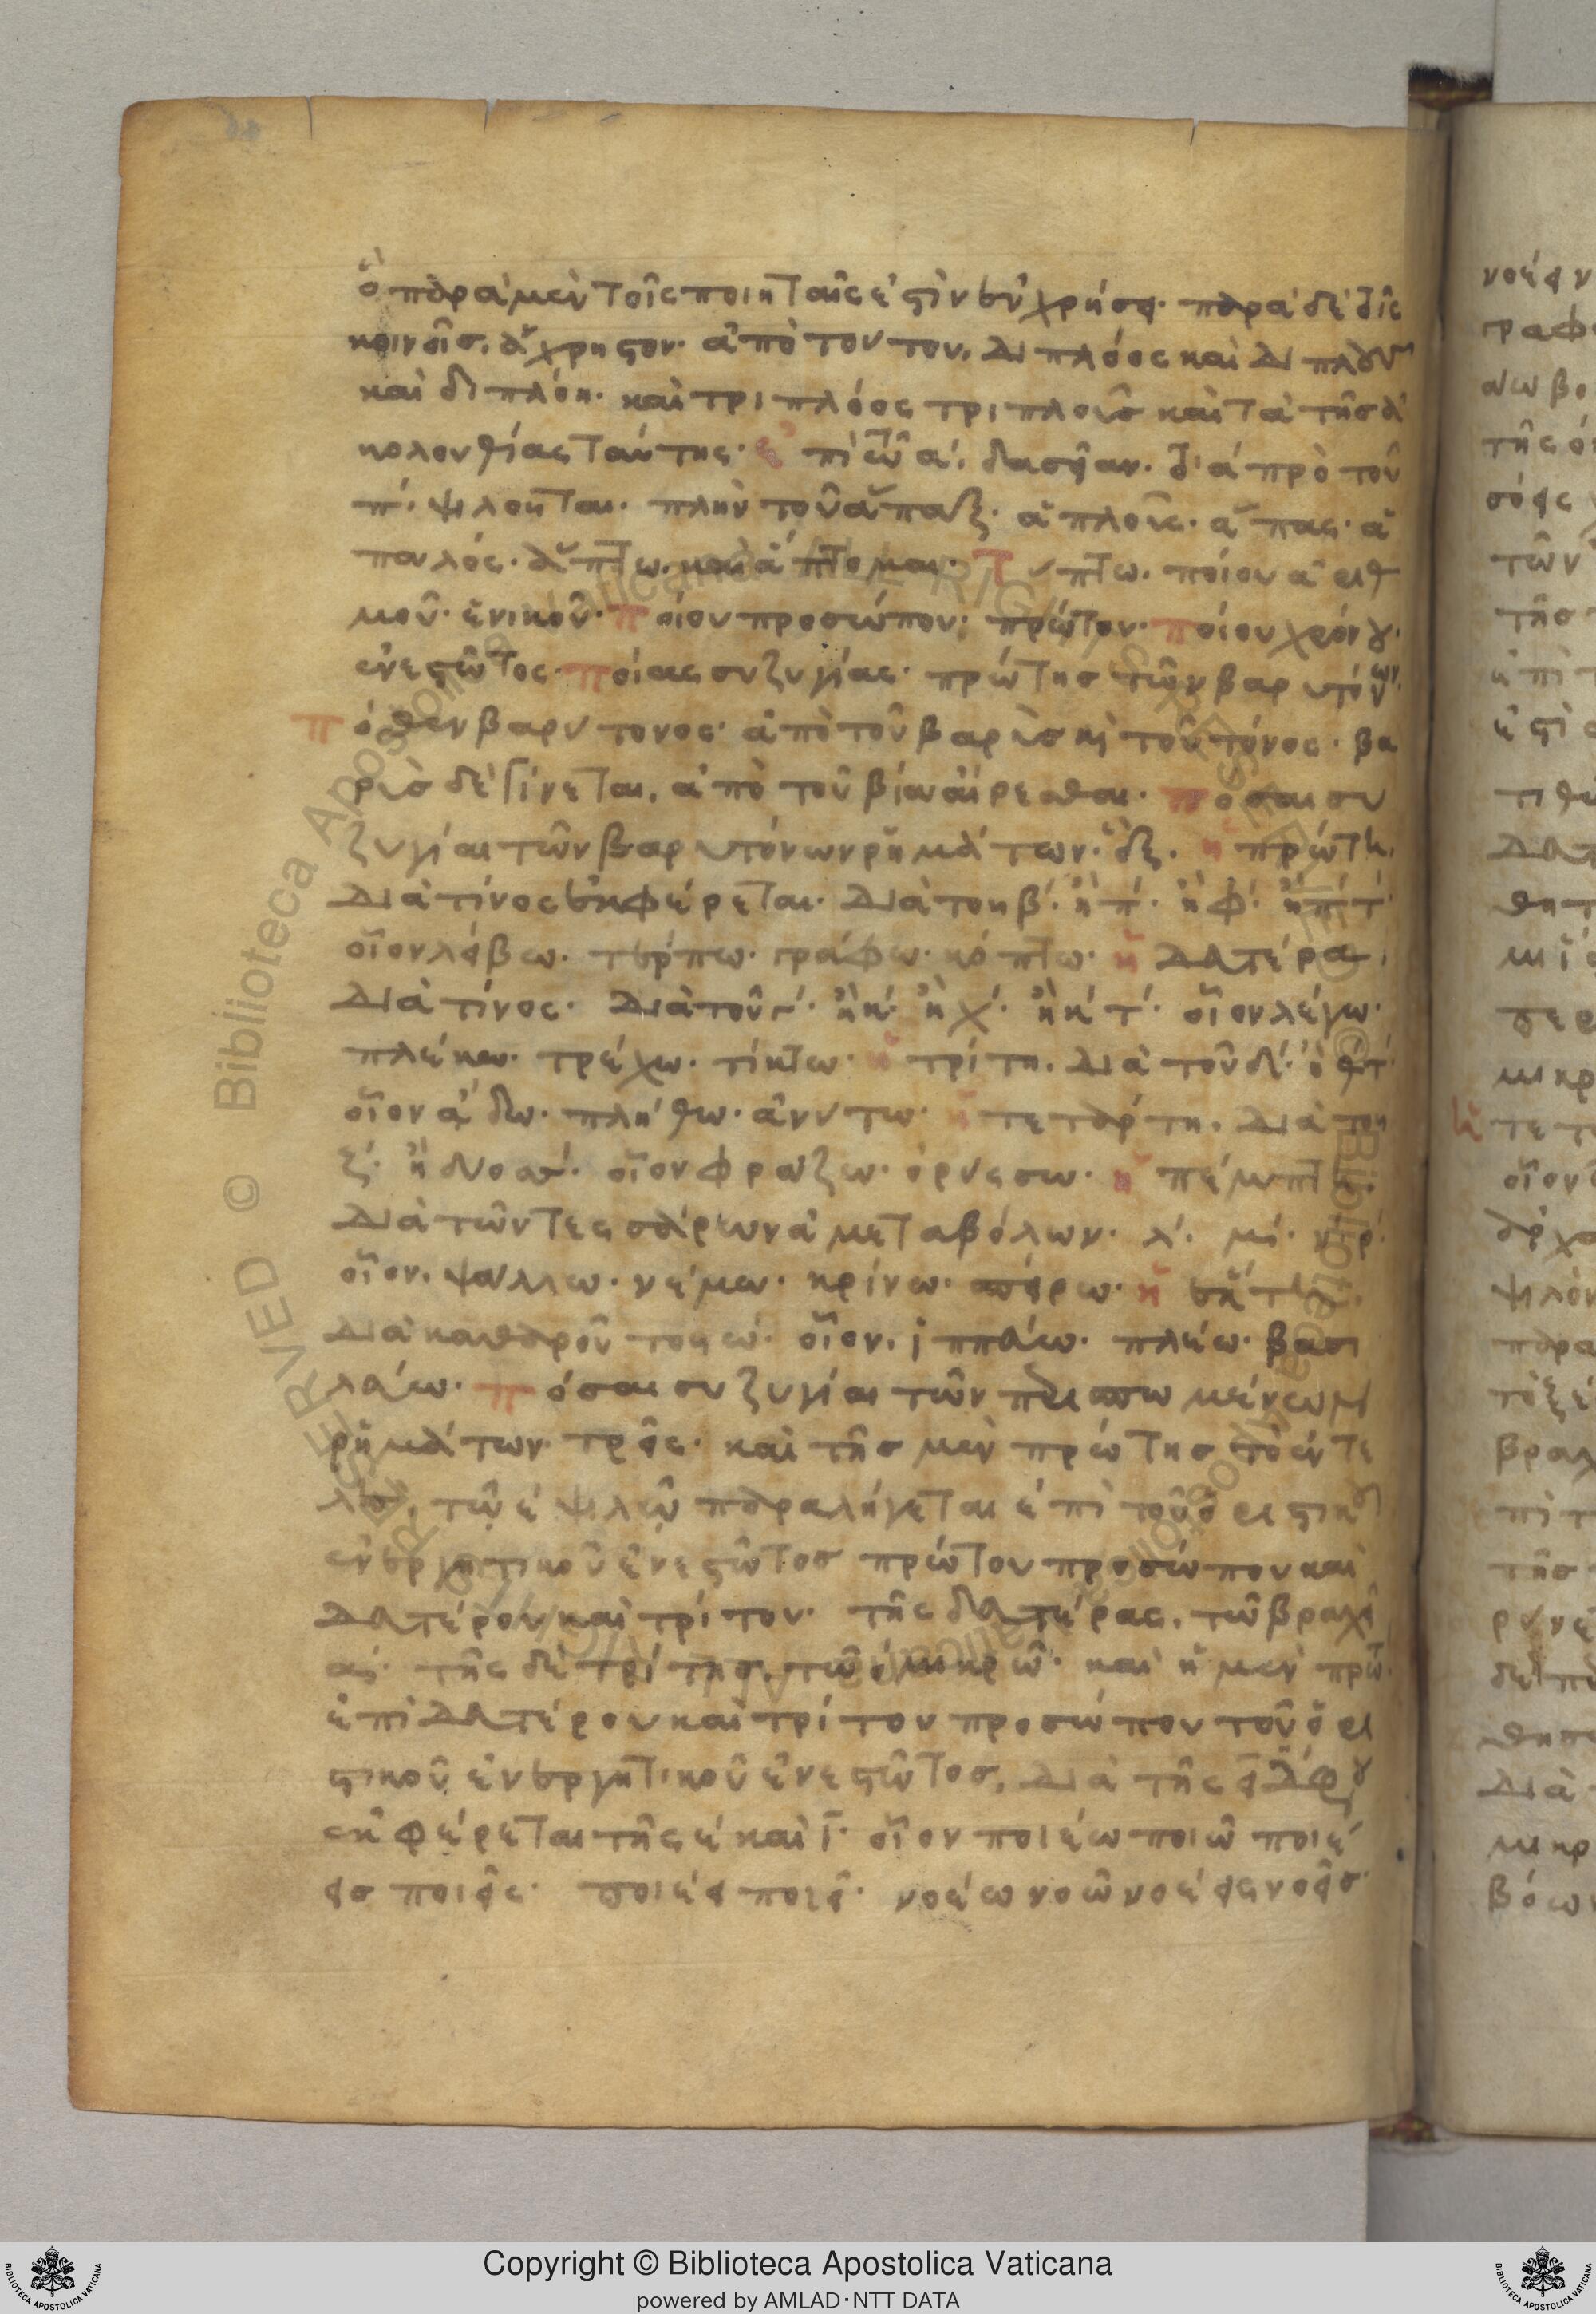 ὃ παρὰ μὲν τοῖς ποιηταῖς ἐστὶν ἐν χρήσει· παρὰ δὲ τοῖς
κοινοῖς, ἄχρηστον· ἀπὸ τούτου, διπλόος καὶ διπλοῦς
καὶ διπλόη· καὶ τριπλόος τριπλοῦς καὶ τὰ τῆς ἀ
κολουθίας ταύτης·
πʹ ψιλοῦται· πλὴν τοῦ ἅπαξ· ἁπλοῦς· ἅπας· ἁ
παλός· ἅπτω· καὶ ἅπτομαι· τύπτω· ποίου ἀριθ
μοῦ· ἑνικοῦ· ποίου προσώπου· πρώτου· ποίου χρόνου·
ἐνεστῶτος· ποίας συζυγίας· πρώτης τῶν βαρυτόνων·
πόθεν βαρύτονος· ἀπὸ τοῦ βαρὺς καὶ τοῦ τόνος· βα
ρὺς δὲ γίνεται, ἀπὸ τοῦ βίᾳ αἴρεσθαι· πόσαι συ
ζυγίαι τῶν βαρυτόνων ῥημάτων· ἕξ· ἡ πρώτη,
διὰ τίνος ἐκφέρεται· διὰ τοῦ βʹ· ἢ πʹ· ἢ φʹ· ἢ πʹ τʹ·
οἷον λείβω· τέρπω· γράφω· κόπτω· ἡ δευτέρα,
διὰ τίνος· διὰ τοῦ γʹ· ἢ κʹ· ἢ χʹ· ἢ κʹ τʹ· οἷον λέγω·
πλέκω· τρέχω· τίκτω· ἡ τρίτη, διὰ τοῦ δʹ· θʹ τʹ
οἷον ᾄδω· πλήθω· ἀνύτω· ἡ τετάρτη, διὰ τοῦ
ζʹ· ἢ δύο σσʹ· οἷον φράζω· ὀρύσσω· ἡ πέμπτη,
διὰ τῶν τεσσάρων ἀμεταβόλων· λʹ· μʹ· νʹ ρʹ
οἷον, ψάλλω· νέμω· κρίνω· σπείρω· ἡ ἕκτη,
διὰ καθαροῦ τοῦ ωʹ· οἷον, ἱππεύω· πλέω· βασι
λεύω· πόσαι συζυγίαι τῶν περισπωμένων
ῥημάτων· τρεῖς· καὶ τῆς μὲν πρώτης
τῷ ε ψιλῷ παραλήγεται ἐπὶ τοῦ ὁριστικοῦ
ἐνεργητικοῦ ἐνεστῶτος πρώτου προσώπου καὶ
δευτέρου καὶ τρίτου· τῆς δευτέρας, τῷ βραχεῖ
αʹ· τῆς δὲ τρίτης, τῷ ο μικρῷ· καὶ ἡ μὲν πρώτη
ἐπὶ δευτέρου καὶ τρίτου προσώπου τοῦ ὁρι
στικοῦ ἐνεργητικοῦ ἐνεστῶτος, διὰ τῆς ει διφθόγγου
ἐκφέρεται τῆς ε καὶ ι· οἷον ποιέω ποιῶ ποιέ
εις ποιεῖς· ποιέει ποιεῖ· νοέω νοῶ νοέεις νοεῖς·
Copyright © Biblioteca Apostolica Vaticana
powered by AMLAD·NTT DATA